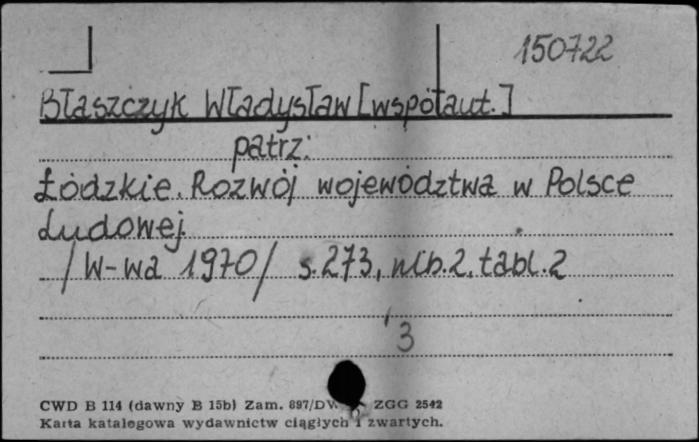 150722
Błaszczyk Władysław [współaut.]
patrz:
Łódzkie. Rozwój województwa w Polsce
Ludowej
/W-wa 1970/ s. 273, nlb. 2, tabl. 2
3
CWD B 114 (dawny B 15b) Zam. 697/DW ZGG 2542
Karta katalogowa wydawnictw ciągłych i zwartych.